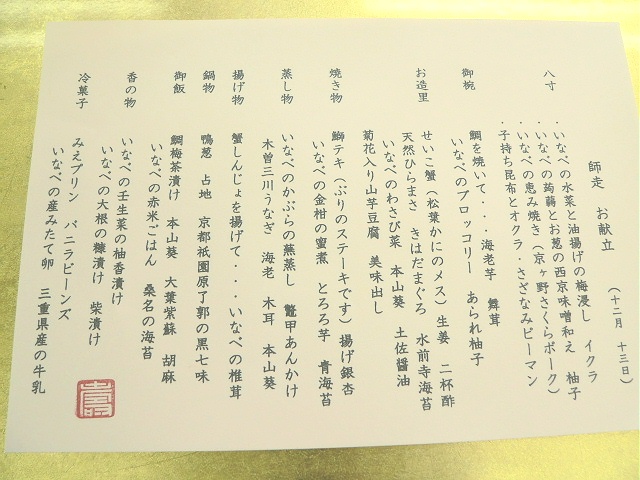 師走 お献立 （十二月 十三日）
八寸
・いなべの水菜と油揚げの梅浸し イクラ
・いなべの蒟蒻とお葱の西京味噌和え 柚子
・いなべの恵み焼き（京ヶ野さくらポーク）
・子持ち昆布とオクラ・さざなみピーマン
御椀
鯛を焼いて・・・海老芋 舞茸
いなべのブロッコリー あられ柚子
お造里
せいこ蟹（松葉かにのメス）生姜 二杯酢
天然ひらまさ きはだまぐろ 水前寺海苔
いなべのわさび菜 本山葵 土佐醤油
菊花入り山芋豆腐 美味出し
焼き物
鰤テキ（ぶりのステーキです）揚げ銀杏
いなべの金柑の蜜煮 とろろ芋 青海苔
蒸し物
いなべのかぶらの蕪蒸し 鼈甲あんかけ
木曽三川うなぎ 海老 木耳 本山葵
揚げ物
蟹しんじょを揚げて・・・いなべの椎茸
鍋物
鴨葱 占地 京都祇園原了郭の黒七味
御飯
鯛梅茶漬け 本山葵 大葉紫蘇 胡麻
いなべの赤米ごはん 桑名の海苔
香の物
いなべの壬生菜の柚香漬け
いなべの大根の糠漬け 柴漬け
冷菓子
みえプリン バニラビーンズ
いなべの産みたて卵 三重県産の牛乳
壽